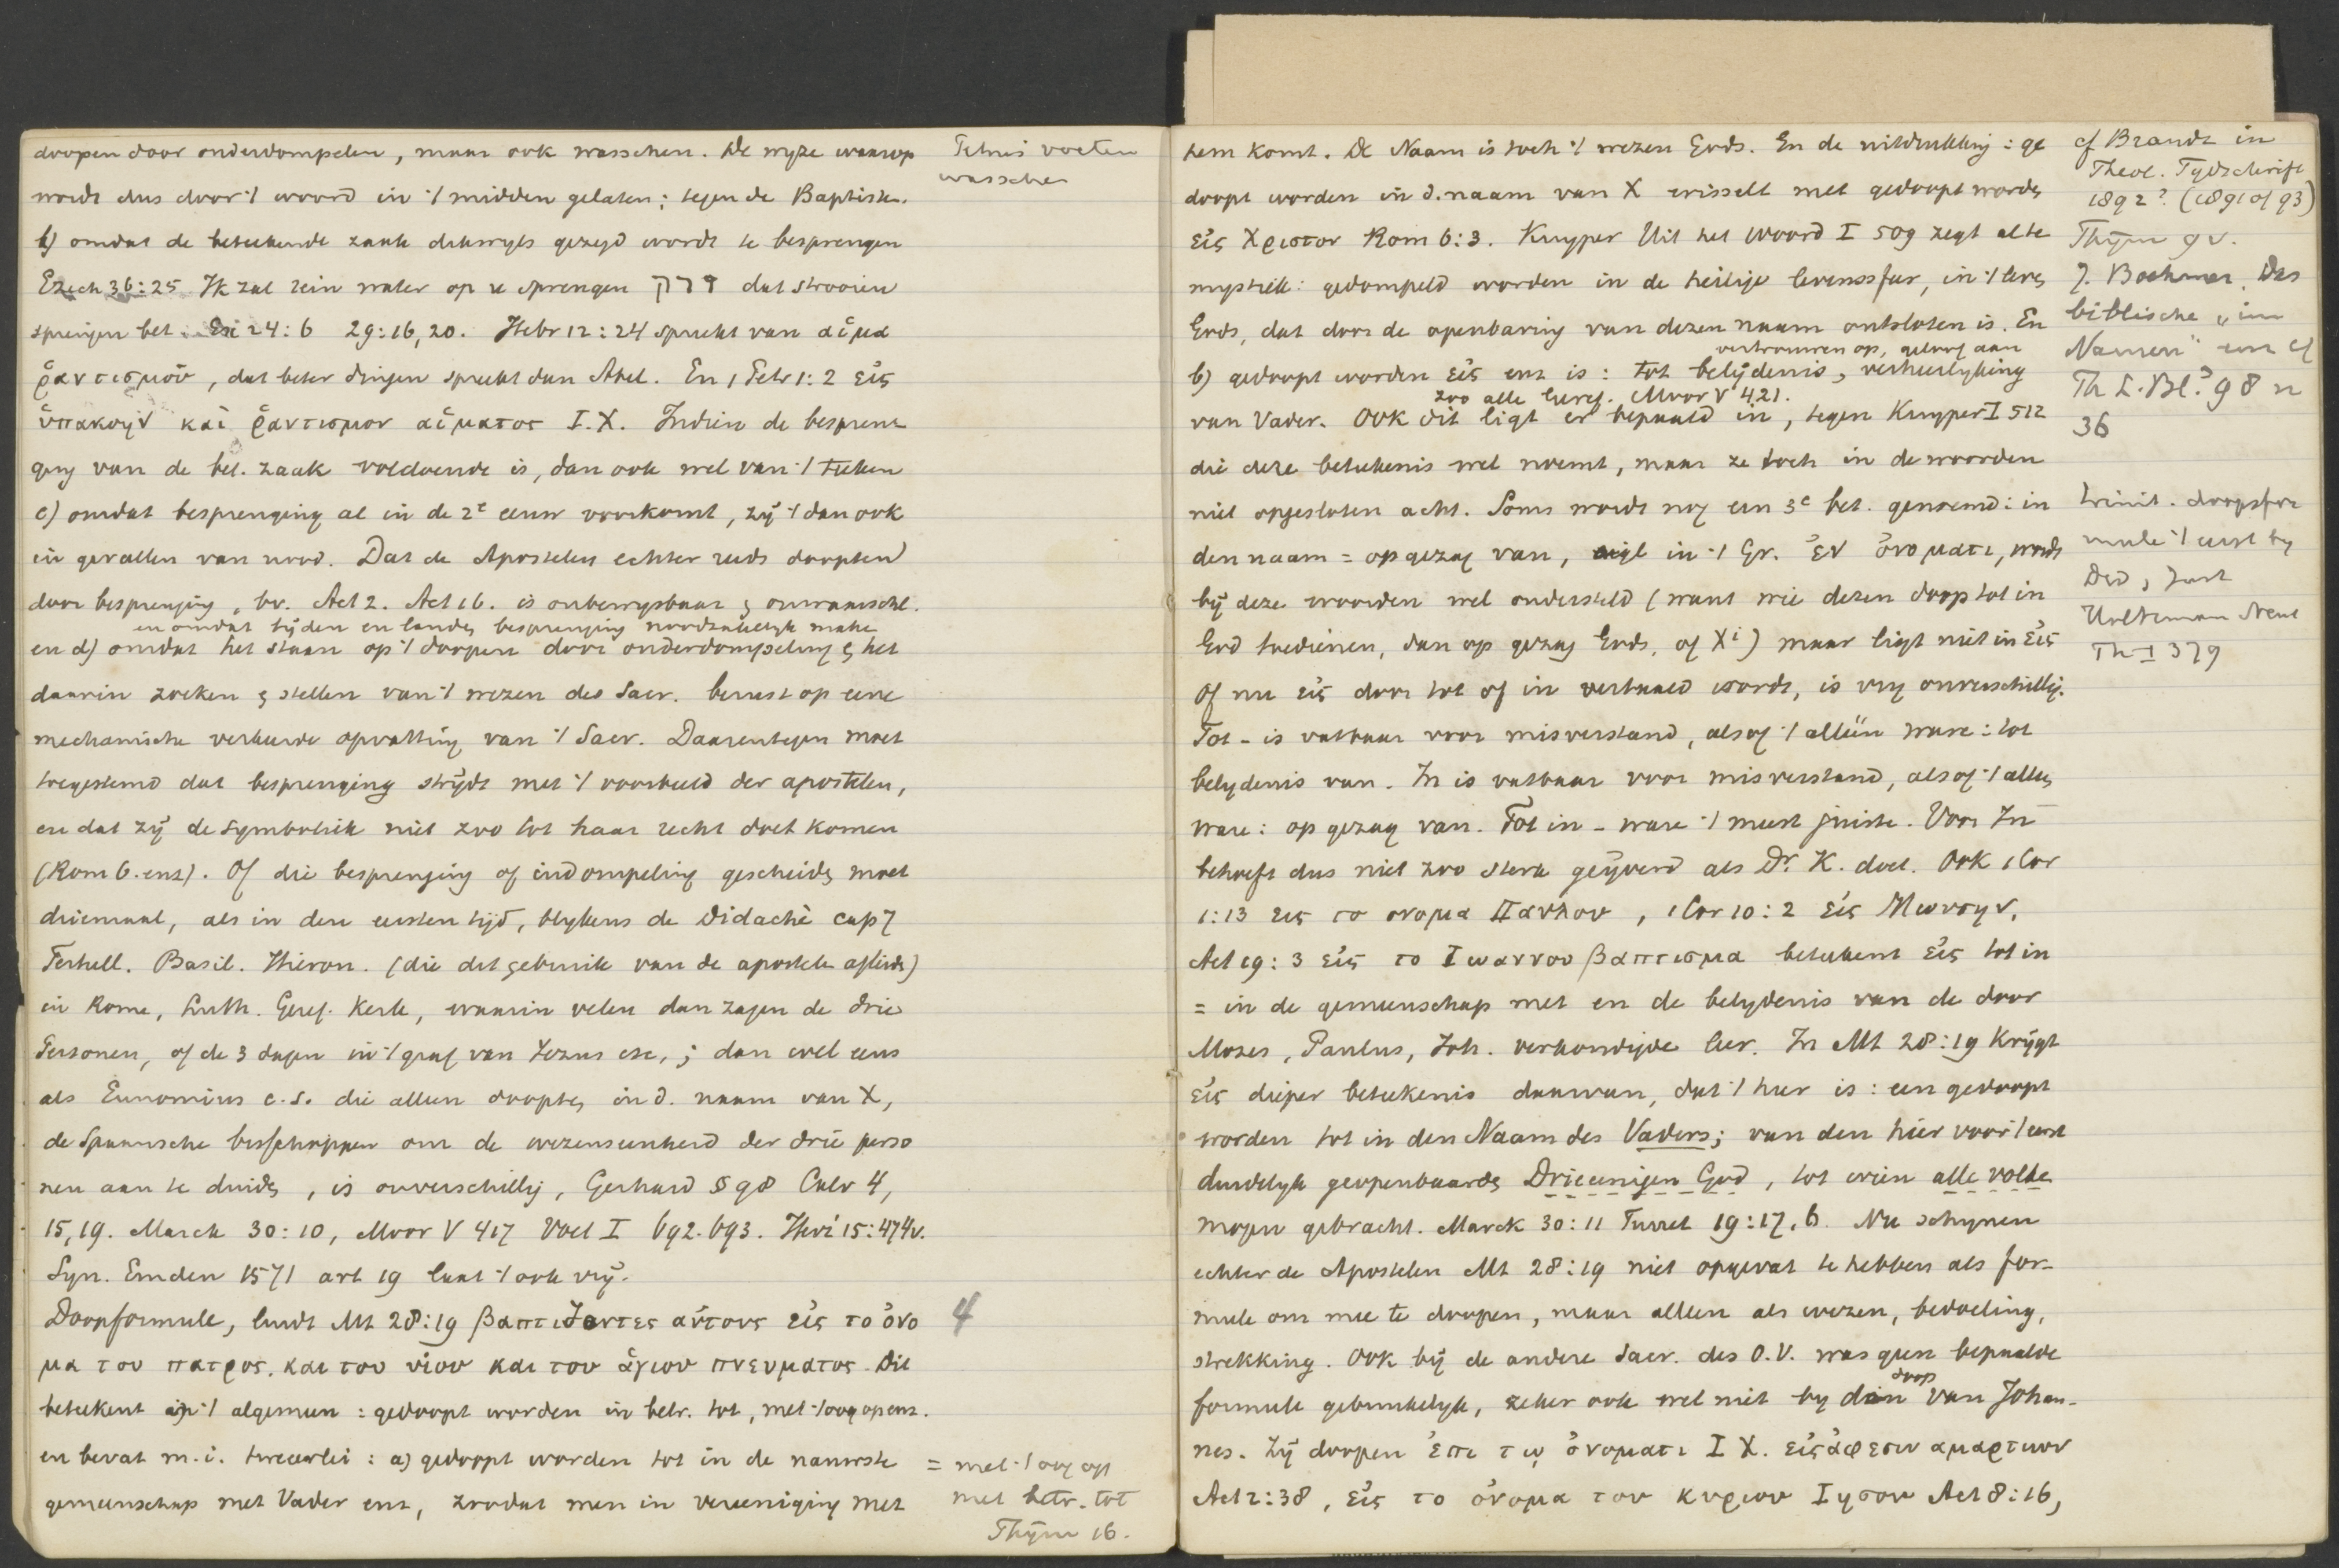 doopen door onderdompelen, maar ook wasschen. De wyze waarop
wordt dus door 't woord in 't midden gelaten; tegen de Baptisten.
b) omdat de beteekende zaak dikwyls gezegd wordt te besprengen
Ezech 36:25 Ik zal rein water op u sprengen זרק dat strooien
sprengen bet. Ex 24:6 29:16,20. Hebr 12:24 spreekt van αἷμα
ῥαντισμοῦ, dat beter dingen spreekt dan Abel. En 1 Petr 1:2 εἰς
ὑπακοὴν καὶ ῥαντισμον αἵματος I.X. Indien de bespren-
ging van de bet. zaak voldoende is, dan ook wel van 't teeken
c) omdat besprenging al in de 2e eeuw voorkomt, zij 't dan ook
in gevallen van nood. Dat de Apostelen echter reeds doopten
door besprenging, bv. Act 2. Act 16. is onbewysbaar & onwaarschl.
en omdat tijden en landen besprenging noodzakelyk maken
en d) omdat het staan op 't doopen door onderdompeling & het
daarin zoeken & stellen van 't wezen des Sacr. berust op eene
mechanische verkeerde opvatting van 't Sacr. Daarentegen moet
toegestemd dat besprenging strijdt met 't voorbeeld der apostelen,
en dat zij de symboliek niet zoo tot haar recht doet komen
(Rom 6. enz). Of die besprenging of indompeling geschieden moet
driemaal, als in den eersten tijd, blykens de Didachè cap 7
Tertull. Basil. Hieron. (die dit gebruik van de apostelen afleidt)
in Rome, Luth. Geref. Kerk, waarin velen dan zagen de drie
Personen, of de 3 dagen in 't graf van Jezus etc,; dan wel eens
als Eunomius c.s. die alleen doopten in d. naam van X,
de Spaansche bisschoppen om de wezenseenheid der drie perso
nen aan te duiden, is onverschillig, Gerhard § 98 Calv 4,
15,19. Marck 30:10, Moor V 417 Voet I 692.693. Heid 15:474v.
Syn. Emden 1571 art 19 laat 't ook vrij.
Doopformule, luidt Mt 28:19 βαπτιζοντες αὐτους εἰς το ὀνο
μα του πατρος, και του υἱου και του ἁγιου πνευματος. Dit
beteekent in 't algemeen: gedoopt worden in betr. tot, met 't oog op enz.
en bevat m.i. tweeerlei: a) gedoopt worden tot in de nauwste
gemeenschap met Vader enz, zoodat men in vereeniging met
Petrus voeten
wasschen
4
= met 't oog op
met betr. tot
Thijm 16.
hem komt. De Naam is toch 't wezen Gods. En de uitdrukking: ge
doopt worden in d. naam van X wisselt met gedoopt worden
εἰς Χριστον Rom 6:3. Kuyper Uit het Woord I 509 zegt al te
mystiek: gedompeld worden in de heilige levenssfeer, in 't leven
Gods, dat door de openbaring van dezen naam ontsloten is. En
vertrouwen op, geloof aan
b) gedoopt worden εἰς enz is: tot belijdenis, verheerlyking
zoo alle Geref. Moor V 421.
van Vader. Ook dit ligt er bepaald in, tegen Kuyper I 512
die deze beteekenis wel noemt, maar ze toch in de woorden
niet opgesloten acht. Soms wordt nog een 3e bet. genoemd: in
den naam = op gezag van, in 't Gr. ἐν ὀνοματι, wordt
bij deze woorden wel ondersteld (want wie dezen doop tot in
God toedienen, dan op gezag Gods, of Xi) maar ligt niet in εἰς
Of nu εἰς door tot of in vertaald wordt, is vry onverschillig.
Tot - is vatbaar voor misverstand, alsof 't alleen ware: tot
belydenis van. In is vatbaar voor misverstand, alsof 't alleen
ware: op gezag van. Tot in - ware 't meest juiste. Voor In
behoeft dus niet zoo sterk geijverd als Dr K. doet. Ook 1 Cor
1:13 εις το ονομα Παυλου, 1 Cor 10:2 εἰς Μωυσην,
Act 19:3 εἰς το Ιωαννου βαπτισμα beteekent εἰς tot in
= in de gemeenschap met en de belydenis van de door
Mozes, Paulus, Joh. verkondigde leer. In Mt 28:19 krijgt
εἰς dieper beteekenis daarvan, dat 't hier is: een gedoopt
worden tot in den Naam des Vaders; van den hier voor 't eerst
duidelyk geopenbaarden Drieenigen God, tot wien alle volken
mogen gebracht. Marck 30:11 Turret 19:17,6. Nu schynen
echter de Apostelen Mt 28:19 niet opgevat te hebben als for-
mule om mee te doopen, maar alleen als wezen, bedoeling,
strekking. Ook bij de andere Sacr. des O.V. was geen bepaalde
doop
formule gebruikelyk, zeker ook wel niet by den van Johan-
nes. Zij doopen ἐπι τῳ ὀνοματι I X. εἰς ἀφεσιν αμαρτιων
Act 2:38, εἰς το ὀνομα του κυριου Ιησου Act 8:16,
cf Brandt in
Theol. Tydschrift
1892? (1891 of 93)
Thijm 9v.
J. Boehmer, Das
biblische „im
Namen" cf
Th L. Bl. 98 n
36
trinit. doopsfor
mule 't eerst by
Did, Just
Uhlhorn Neut
Th I 379